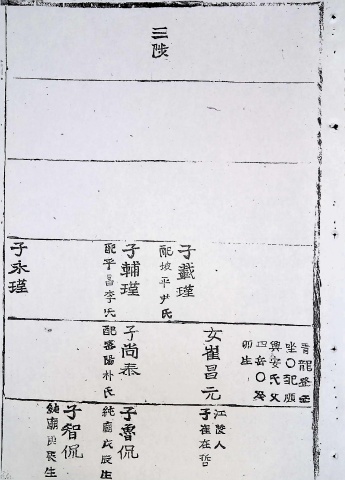 三陟
子戴瑾
配坡平尹氏
子輔瑾
配平昌李氏
子永瑾
青龍
坐〇配順
興安氏父
四岳〇癸
卯生
女崔昌元
江陵人
子崔在哲
子尚泰
配密陽朴氏
子魯侃
純廟戊辰生
子智侃
純廟庚辰生